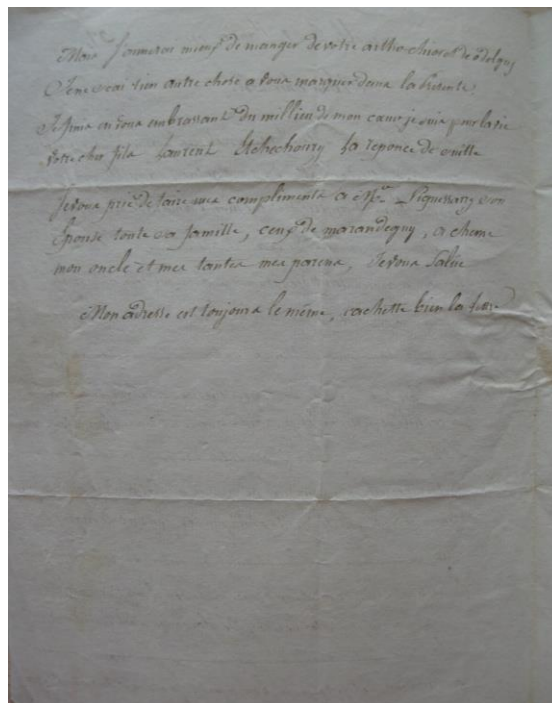 Mais J'aimerai mieux de manger de votre arthio chiac de odolguy
Je ne scai rien autre chose a vous marquer dans la presente
Je finis en vous embrassant du millieu de mon cœur je suis pour la vie
votre cher fils Laurent Etchechoury La reponce de suitte
Je vous prie de faire mes compliments a Mr. son
Epouse toute sa famille, ceux de marandeguy, a cheme
mon oncle et mes tantes mes parens, Je vous salue
Mon adresse est toujours le même, cachette bien la